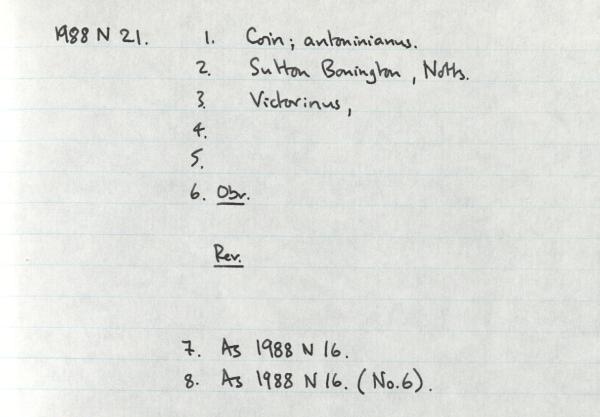 1988 N 21. 1. Coin; antoninianus.
2. Sutton Bonington, Notts.
3. Victorinus,
4.
5.
6. Obv.
Rev.
7. As 1988 N 16.
8. As 1988 N 16. (No.6).